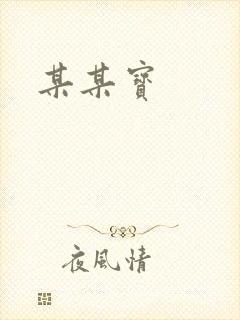 某某寶
夜風情